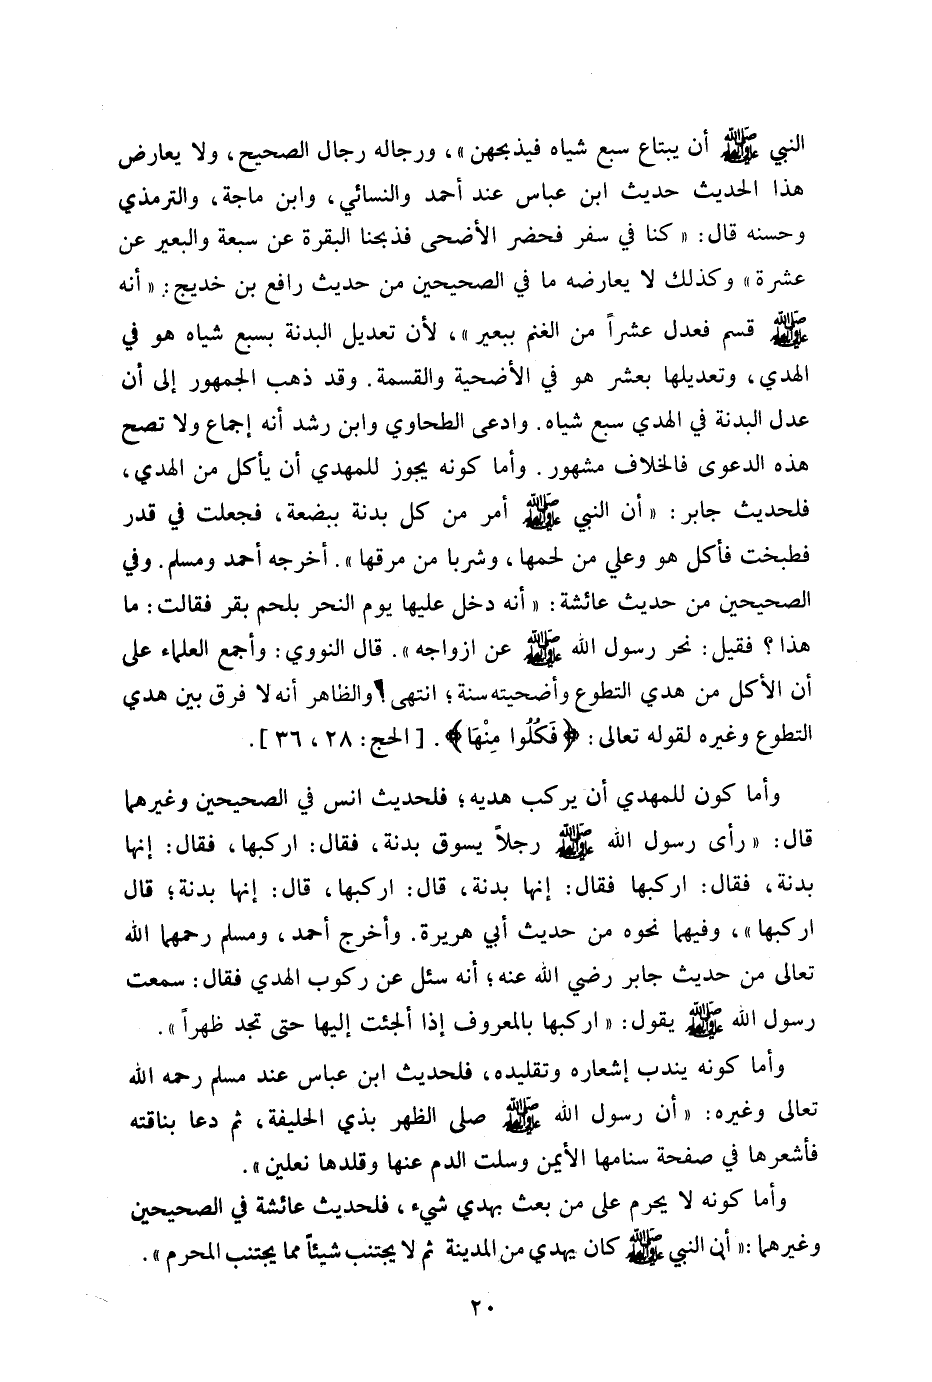 النبي ﷺ أن يبتاع سبع شياه فيذبحهن »، ورجاله رجال الصحيح، ولا يعارض
هذا الحديث حديث ابن عباس عند أحمد والنسائي، وابن ماجة، والترمذي
وحسنه قال: « كنا في سفر فحضر الأضحى فذبحنا البقرة عن سبعة والبعير عن
عشرة » وكذلك لا يعارضه ما في الصحيحين من حديث رافع بن خديج: « أنه
ﷺ قسم فعدل عشراً من الغنم ببعير »، لأن تعديل البدنة بسبع شياه هو في
الهدي، وتعديلها بعشر هو في الأضحية والقسمة. وقد ذهب الجمهور إلى أن
عدل البدنة في الهدي سبع شياه. وادعى الطحاوي وابن رشد أنه إجماع ولا تصح
هذه الدعوى فالخلاف مشهور. وأما كونه يجوز للمهدي أن يأكل من الهدي،
فلحديث جابر: « أن النبي ﷺ أمر من كل بدنة ببضعة، فجعلت في قدر
فطبخت فأكل هو وعلي من لحمها، وشربا من مرقها ». أخرجه أحمد ومسلم. وفي
الصحيحين من حديث عائشة: « أنه دخل عليها يوم النحر بلحم بقر فقالت: ما
هذا؟ فقيل: نحر رسول الله ﷺ عن ازواجه ». قال النووي: وأجمع العلماء على
أن الأكل من هدي التطوع وأضحيته سنة؛ انتهى والظاهر أنه لا فرق بين هدي
التطوع وغيره لقوله تعالى: ﴿فَكُلُوا مِنْهَا﴾. [ الحج: ٢٨، ٣٦ ].
وأما كون للمهدي أن يركب هديه؛ فلحديث انس في الصحيحين وغيرهما
قال: « رأى رسول الله ﷺ رجلاً يسوق بدنة، فقال: اركبها، فقال: إنها
بدنة، فقال: اركبها فقال: إنها بدنة، قال: اركبها، قال: إنها بدنة؛ قال
اركبها »، وفيهما نحوه من حديث أبي هريرة. وأخرج أحمد، ومسلم رحمهما الله
تعالى من حديث جابر رضي الله عنه؛ أنه سئل عن ركوب الهدي فقال: سمعت
رسول الله ﷺ يقول: « اركبها بالمعروف إذا ألجئت إليها حتى تجد ظهراً ».
وأما كونه يندب إشعاره وتقليده، فلحديث ابن عباس عند مسلم رحمه الله
تعالى وغيره: « أن رسول الله ﷺ صلى الظهر بذي الحليفة، ثم دعا بناقته
فأشعرها في صفحة سنامها الأيمن وسلت الدم عنها وقلدها نعلين ».
وأما كونه لا يحرم على من بعث بهدي شيء، فلحديث عائشة في الصحيحين
وغيرهما: « أن النبي ﷺ كان يهدي من المدينة ثم لا يجتنب شيئاً مما يجتنب المحرم ».
٢٠